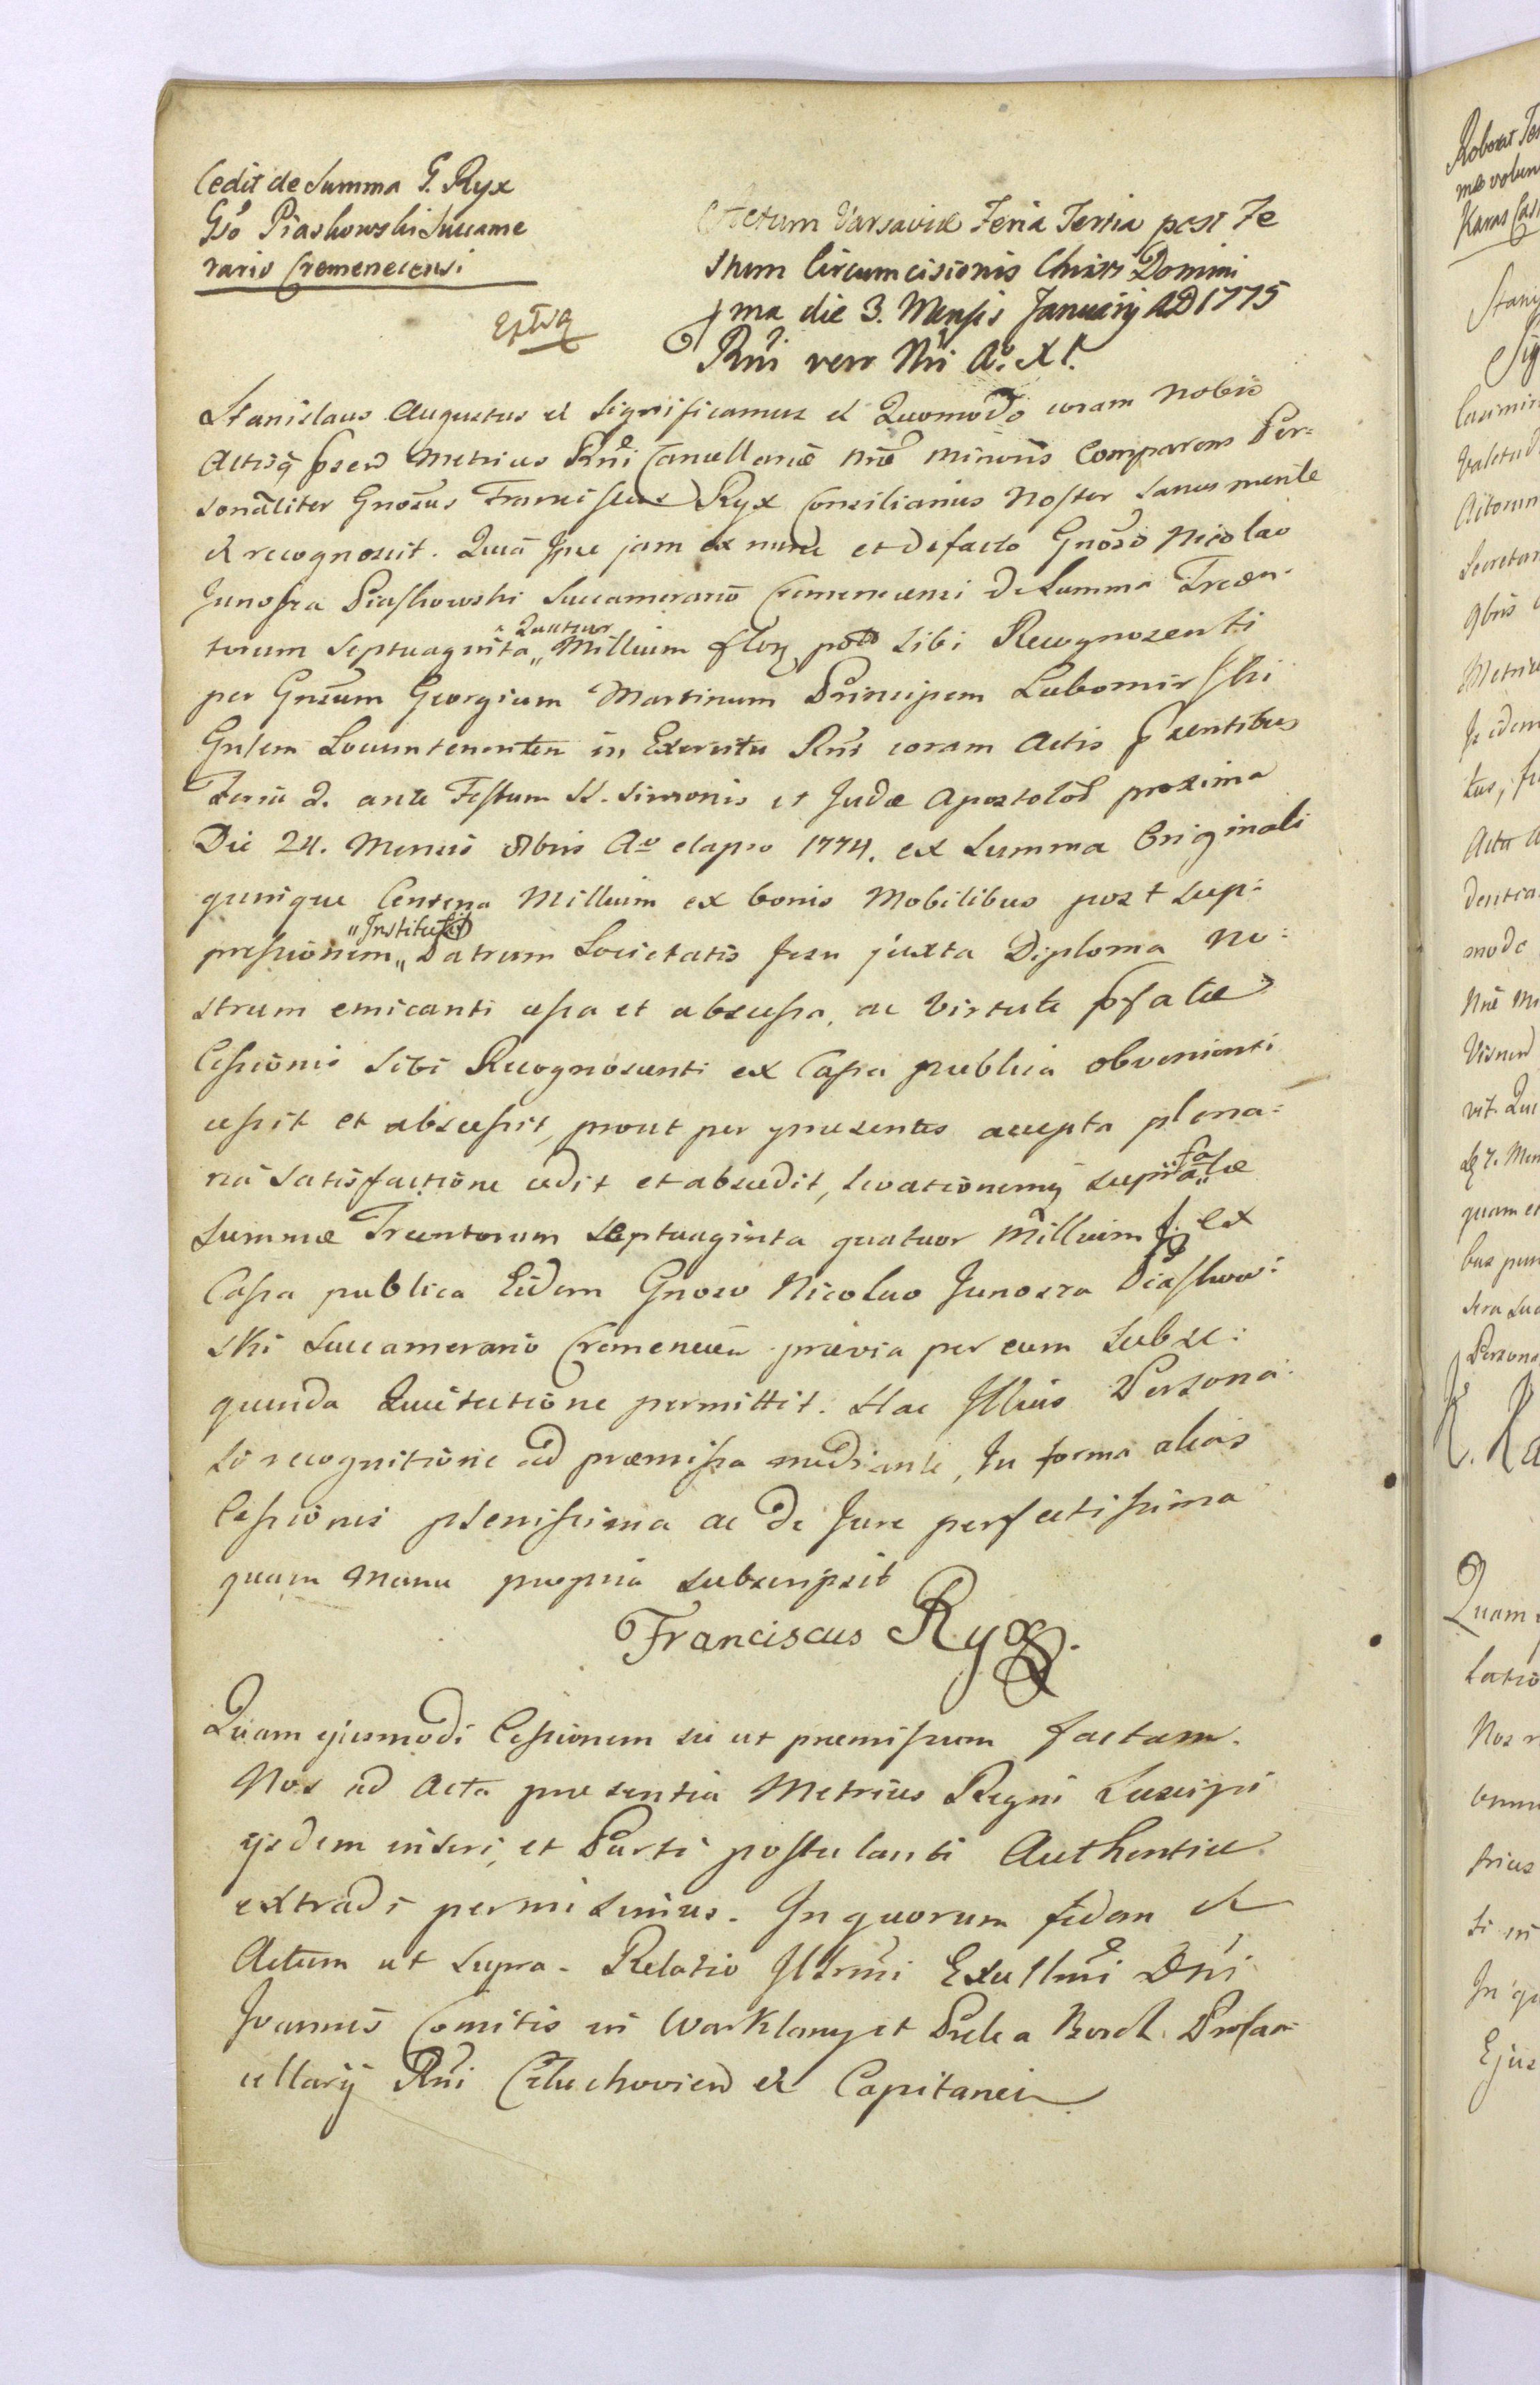 Cedit de Summa G. Ryx
Gso Piaskowski Succame
rario Cremenecensi
Actum Varsaviæ Feria Tertia post Fe
stum Circumcisionis Christi Domini
ma die 3. Mensis Januarij AD 1775
Rni vero Nri Ao. XI.
Stanislaus Augustus et Significamus et Quomodo coram Nobis
Actisq psend Metrices Rni Cancellariæ Nræ Minoris Comparens Per=
sonaliter Gnosus Franciscus Ryx Consiliarius Noster sanus mente
et recognovit. Quia Ipse jam ex nunc et de facto Gnoso Nicolao
Junosza Piaskowski Succamerario Cremenecensi De Summa Trecen-
torum Septuaginta "Quatuor" Millium flor pol Sibi Recognoscenti
per Gnsum Georgium Martinum Principem Lubomirski
Gnlem Locumtenentem in Exercitu Rni coram Actis psentibus
Feria 2. ante Festum SS. Simonis et Judæ Apostolo proxima
Die 24. Mensis 8bris Ao elapso 1774. ex Summa Originali
quinque Centena Millium ex bonis Mobilibus post Sup=
pressionem "Instituti" Patrum Societatis Jesu juxta Diploma No=
strum emicanti cessa et abscessa, ac Virtute pfatæ
Cessionis Sibi Recognoscenti ex Cassa publica obvenienti
cessit et abscessit, prout per præsentes accepta plena=
ria Satisfactione cedit et abscedit, levationemq supra"fa"tæ
Summæ Trecentorum Septuaginta quatuor Millium f. ex
Cassa publica Eidem Gnoso Nicolao Junosza Piaskow=
ski Succamerario Cremenecen prævia per eum Subse=
quenda Quietatione permittit. Hac Illius Persona=
li recognitione ad præmissa mediante, In forma alias
Cessionis plenissima ac de Jure perfectissima
quam Manu propria subscripsit
Franciscus Ryx.
Quam ejusmodi Cessionem sic ut præmissum factam.
Nos ad Acta præsentia Metrices Regni Suscipi
ijsdem inseri, et Parti postulanti Authentice
extradi permisimus. In quorum fidem et
Actum ut Supra. Relatio Illrmi Excellmi Dni
Joannis Comitis in Warklany et Prele a Borch Procan
cellarij Rni Człuchovien et Capitanei